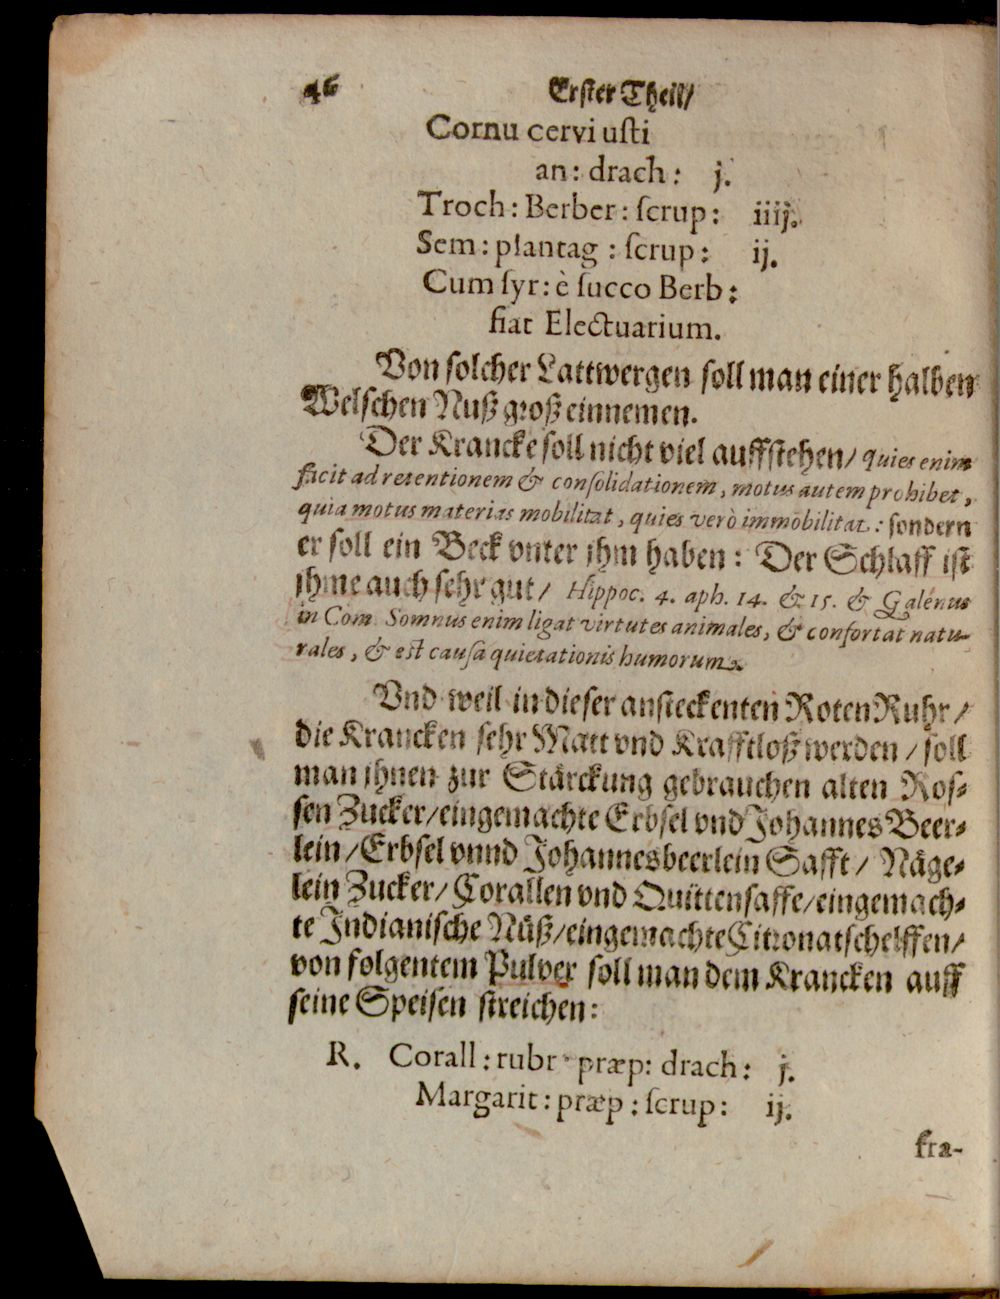 46 Erster Theil/
Cornu cervi uſti
an: drach: j.
Troch: Berber: ſcrup: iiij.
Sem: plantag: ſcrup: ij.
Cum ſyr: è ſucco Berb:
fiat Electuarium.
Von ſolcher Lattwergen ſoll man einer halben
Welſchen Nuß groß einnemen.
Der Krancke ſoll nicht viel auffſtehen/ quies enim
facit ad retentionem & conſolidationem, motus autem prohibet,
quia motus materias mobilitat, quies verò immobilitat: ſondern
er ſoll ein Beck vnter jhm haben: Der Schlaff iſt
jhme auch ſehr gut/ Hippoc. 4. aph. 14. & 15. & Galenus
in Com. Somnus enim ligat virtutes animales, & confortat natu-
rales, & eſt cauſa quietationis humorum.
Vnd weil in dieſer anſteckenten Roten Ruhr/
die Krancken ſehr Matt vnd Krafftloß werden/ ſoll
man jhnen zur Stärckung gebrauchen alten Roſ-
ſen Zucker/ eingemachte Erbſel vnd Johannes Beer-
lein/ Erbſel vnnd Johannesbeerlein Safft/ Näge-
lein Zucker/ Corallen vnd Quittenſaffe/ eingemach-
te Indianiſche Nüß/ eingemachte Citronatſchelffen/
von folgentem Pulver ſoll man dem Krancken auff
ſeine Speiſen ſtreichen:
R. Corall: rubr. præp: drach: j.
Margarit: præp: ſcrup: ij.
fra-